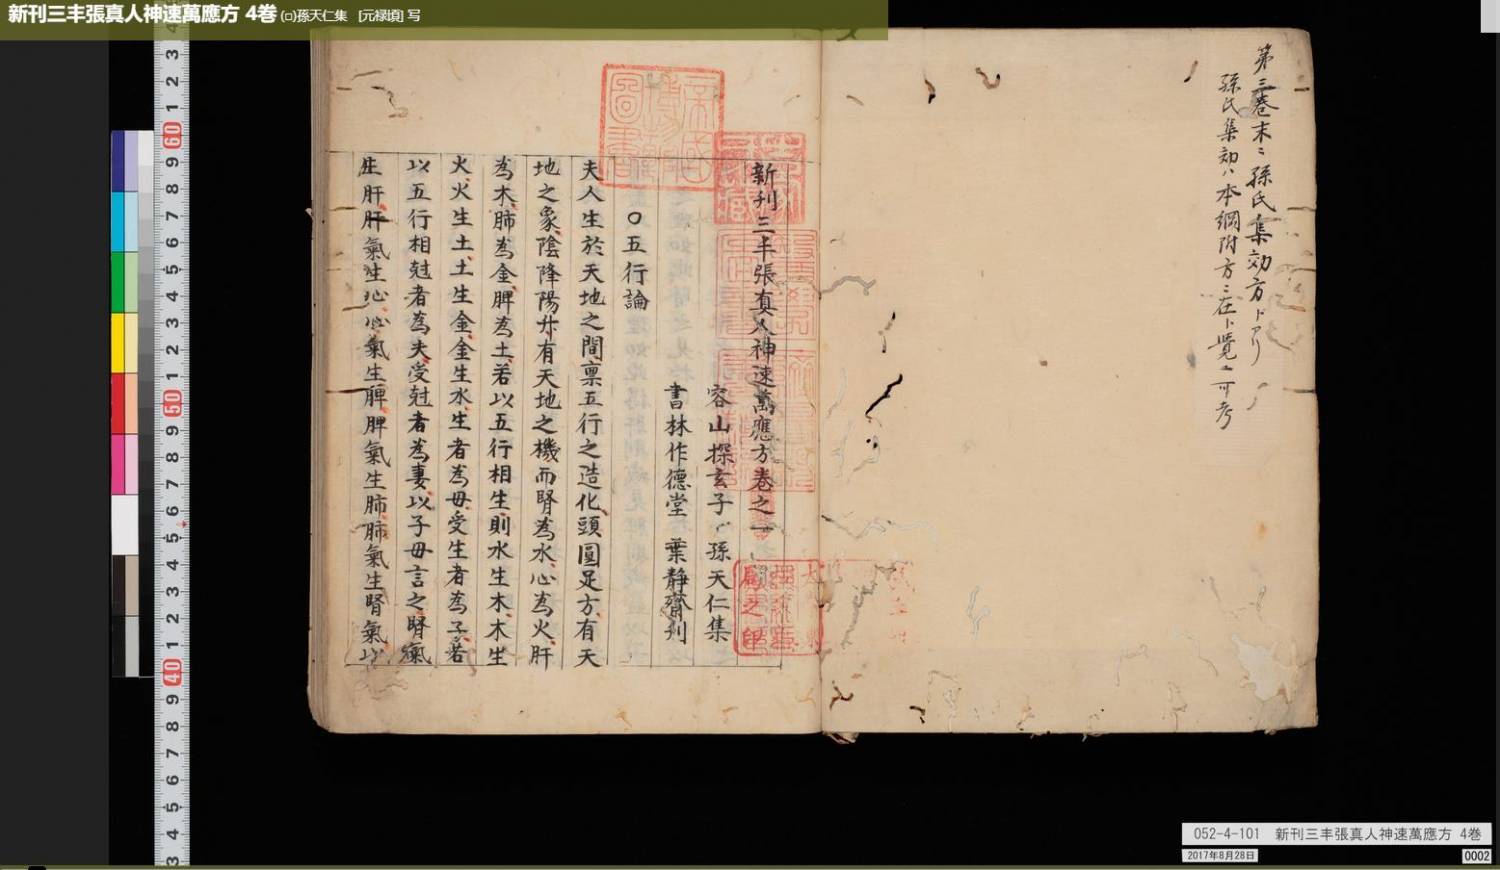 新刊三丰張真人神速萬應方 4巻 (□)孫天仁集 [元禄頃] 写
第三巻末ニ孫氏集効方トアリ
孫氏集効ハ本綱附方ニ在ト覽ヘ可考
新刋三丰張真人神速萬應方卷之一
容山探玄子 孫天仁集
書林作德堂 葉静齋刋
〇五行論
夫人生於天地之間禀五行之造化頭圓足方有天
地之象陰降陽升有天地之機而腎為水心為火肝
為木肺為金脾為土若以五行相生則水生木木生
火火生土土生金金生水生者為母受生者為子若
以五行相尅者為夫受尅者為妻以子母言之腎氣
生肝肝氣生心心氣生脾脾氣生肺肺氣生腎氣以
4
3
2
1
60
9
8
7
6
5
4
3
2
1
50
9
8
7
6
5
4
3
2
1
40
9
8
7
6
5
4
3
052-4-101 新刊三丰張真人神速萬應方 4巻
2017年8月28日
0002